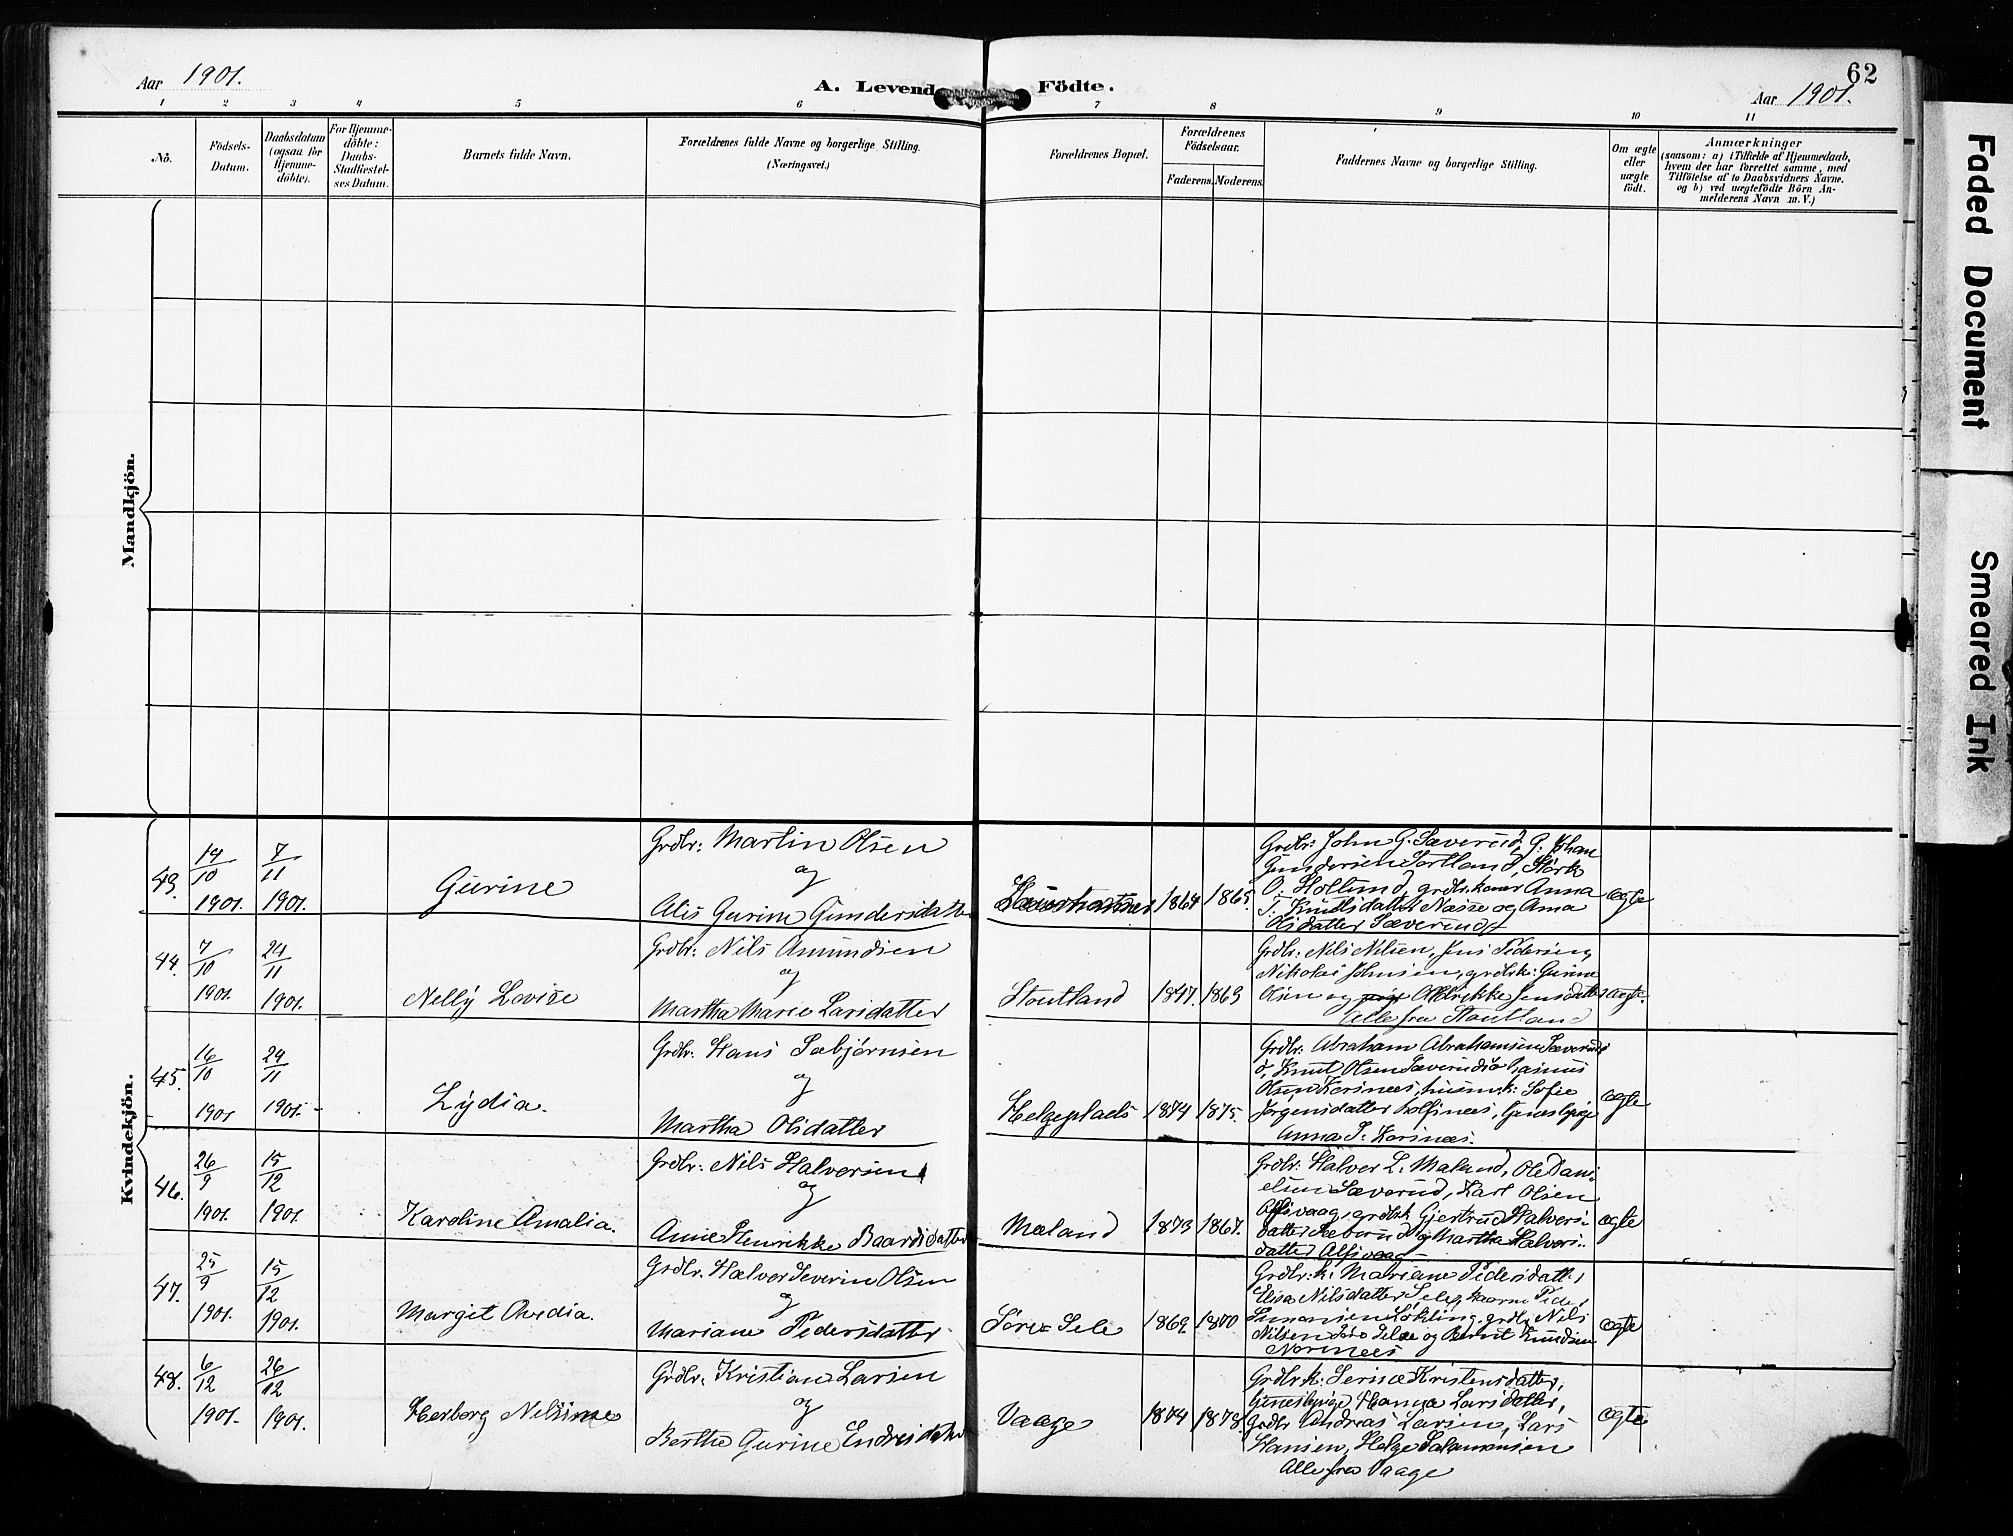 62
Aar 1901.
A. Levende Födte.
Aar 1901.
1 2 3 4 5 6 7 8 9 10 11
No.
Födsels-
Datum.
Daabsdatum
(ogsaa for
Hjemme-
døbte).
For Hjemme-
døbte:
Daabs-
Stadfæstel-
ses Datum.
Barnets fulde Navn.
Forældrenes fulde Navne og borgerlige Stilling.
(Næringsvei.)
Forældrenes Bopæl.
Forældrenes
Födselsaar.
Faderens. Moderens.
Faddernes Navne og borgerlige Stilling.
Om ægte
eller
uægte
født.
Anmærkninger
(saasom: a) i Tilfælde af Hjemmedaab,
hvem der har forrettet samme, med
Tilföielse af to Daabsvidners Navne,
og b) ved uægtefödte Börn An-
melderens Navn m. V.)
Mandkjön.
Kvindekjön.
43.
14/10 1901.
7/11 1901.
Gurine
Grdbr: Martin Olsen
og
Alis Gurine Gundersdatter
1864
1865.
Grdbr: John G. Sæverud, G. Johan
Gundersen Sortland, Størk
O. Hollund, grdbr.koner Anna
T. Knutsdatter Næsse og Anna
Olsdatter Sæverud
ægte
44.
7/10 1901.
24/11 1901.
Nelly Lovise
Grdbr: Nils Amundsen
og
Martha Marie Larsdatter
Stoutland
1847.
1869
Grdbr: Nils Nilsen, Jens Pedersen,
Nikolai Johnsen, grdbrk: Gurine
Olsen og Aldrikke Jensdatter
Alle fra Stoutland
ægte.
45.
16/10 1901
24/11 1901.
Lydia.
Grdbr: Hans Sæbjørnsen
og
Martha Olsdatter
Helgeplads
1874
1875.
Grdbr: Abraham Abrahamsen Sæverud
Knut Olsen Sæverud, Rasmus
Olsen Korsnæs, husmk: Sofie
Jørgensdatter Rolfsnæs, Tjenestpige
Anna J. Korsnæs.
ægte
46.
26/9 1901.
15/12 1901.
Karoline Amalia.
Grdbr: Nils Halversen
og
Anne Henrikke Baardsdatter
Mæland
1873
1867.
Grdbr: Halver L. Mæland, Ole Dani-
elsen Sæverud, Karl Olsen
Alfsvaag, grdbrk Gjertrud Halvers-
datter Sæverud og Martha Halvers-
datter Alfsvaag
ægte
47.
25/9 1901.
15/12 1901.
Margit Ovidia.
Grdbr: Halver Severin Olsen
og
Mariane Pedersdatter
Søre Sele
1869
Grdbr.k: Mariane Pedersdatter
Elisa Nilsdatter Sele,
Simonsen Løkling, grdbr Nils
Nilsen Søre Sele og Bernt Knudsen
Nornæs
ægte
48.
6/12 1901.
26/12 1901.
Herborg Nelsine
Grdbr. Kristian Larsen
og
Berthe Gurine Endresdatter
Vaage
1874
1878.
Grdbr.k: Serine Kristensdatter,
Tjenestpige Hanna Larsdatter,
Grdbr Andreas Larsen, Lars
Hansen, Helge Salamonsen
Alle fra Vaage
ægte
Faded Document
Smeared Ink